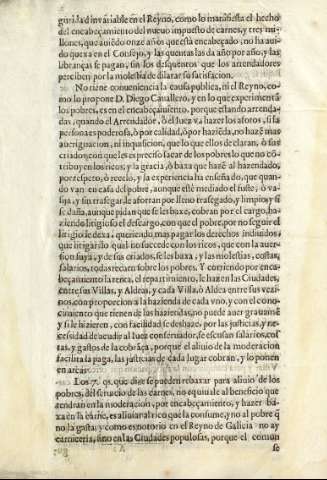 guridad invariable en el Reyno, como lo manifiesta el hecho
del encabeçamiento del nuevo impuesto de carnes, y tres mi-
llones, que aviẽdo onze años que està encabeçado, no ha avi-
do quexa en el Consejo, y las quentas las da año por año, y las
libranças se pagan, sin los desquentos que los arrendadores
perciben por la molestia de dilatar su satisfacion.
No tiene conveniencia la causa publica, ni el Reyno, co-
mo lo propone D. Diego Cavallero, y en lo que experimentã
los pobres, es en el encabeçamiento, porque estando arrenda-
das, quando el Arrendador, ò el Iuez và hazer los aforos, si la
persona es poderosa, ò por calidad, ò por haziẽda, no hazẽ mas
averiguacion, ni inquisicion, que lo que ellos declaran, ò sus
criados; con que les es preciso sacar de los pobres lo que no cõ-
tribuyen los ricos; y la gracia, ò baxa que hazẽ al hazendado,
por respeto, ò recelo, y la experiencia ha enseñado, que quan-
do van en casa del pobre, aunque estè mediado el fuste, ò va-
sija, y sin trasegar, le aforran por lleno trasegado, y limpio; y si
se daña, aunque pidan que se les baxe, cobran por el cargo, ha-
ziendo litigioso el descargo, con que el pobre por no seguir el
litigio le dexa, queriendo mas pagar los derechos indevidos,
que litigarlo, lo qual no succede con los ricos, que con la aver-
sion suya, y de sus criados, se les baxa, y las molestias, costas,
salarios, todas recaen sobre los pobres. Y corriendo por enca-
beçamiento la renta, el repartimiento, le hazen las Ciudades,
entre sus Villas, y Aldeas, y cada Villa, ò Aldea entre sus vezi-
nos, con proporcion a la hazienda de cada vno, y con el cono-
cimiento que tienen de las haziendas, no puede aver gravamẽ
y si le hizieren, con facilidad se deshaze por las justicias, y ne-
cessidad de acudir al Iuez conservador, se escusan salarios, cos-
tas, y gastos de la cobrãça, porque el alivio de la moderacion
facilita la paga, las justicias de cada lugar cobran, y lo ponen
en arcas.
Los 7. qs. que dize se pueden rebaxar para alivio de los
pobres, del servicio de las carnes, no equivale al beneficio que
tendran en la moderacion, por encabeçamiento, y hazer ba-
xa en la carne, es aliviar al rico que la consume, y no al pobre q̃
no la gasta; y como es notorio en el Reyno de Galicia no ay
carniceria, sino en las Ciudades populosas, porque el comun
se